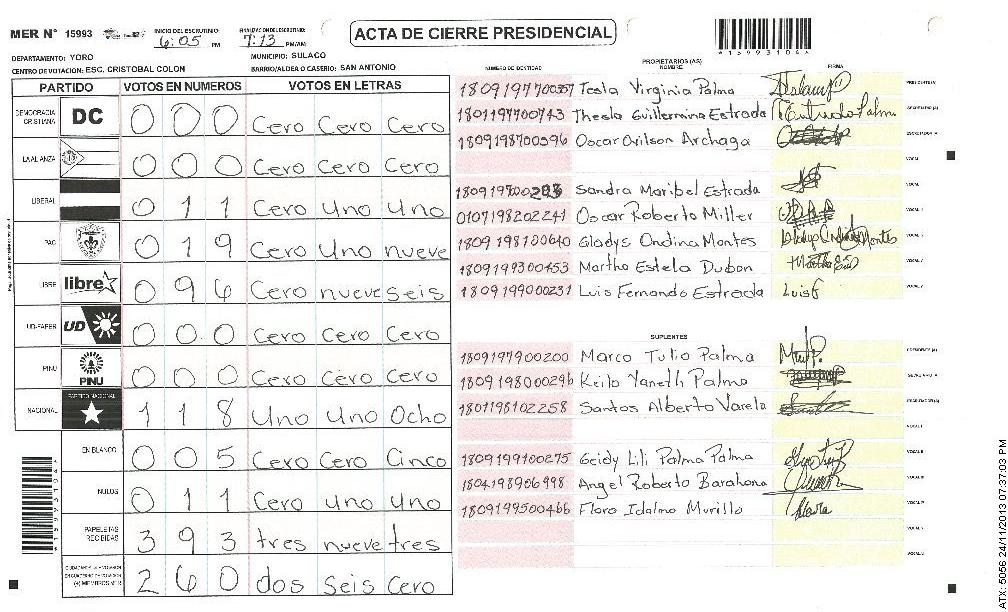 MER N° 15993
INICIO DEL ESCRUTINIO: 6:05 PM
FINALIZACION DEL ESCRUTINIO: 7:13 PM/AM
ACTA DE CIERRE PRESIDENCIAL
*15993104*
DEPARTAMENTO: YORO
MUNICIPIO: SULACO
CENTRO DE VOTACIÓN: ESC. CRISTOBAL COLON
BARRIO/ALDEA O CASERIO: SAN ANTONIO
PARTIDO VOTOS EN NUMEROS VOTOS EN LETRAS
DEMOCRACIA CRISTIANA DC 0 0 0 Cero Cero Cero
LA ALIANZA 0 0 0 Cero Cero Cero
LIBERAL 0 1 1 Cero Uno Uno
PAC 0 1 9 Cero Uno nueve
LIBRE libre 0 9 6 Cero nueve Seis
UD-FAPER UD 0 0 0 Cero Cero Cero
PINU PINU 0 0 0 Cero Cero Cero
NACIONAL PARTIDO NACIONAL 1 1 8 Uno Uno Ocho
EN BLANCO 0 0 5 Cero Cero Cinco
NULOS 0 1 1 Cero uno uno
PAPELETAS RECIBIDAS 3 9 3 tres nueve tres
(+) MIEMBROS MER 2 6 0 dos Seis Cero
PROPIETARIOS (AS)
NÚMERO DE IDENTIDAD NOMBRE FIRMA
1809197700357 Tesla Virginia Palma PRESIDENTE (A)
1801197700743 Thesla Guillermina Estrada SECRETARIO (A)
1809198700596 Oscar Ovilson Archaga ESCRUTADOR (A)
VOCAL I
Sandra Maribel Estrada
0107198202241 Oscar Roberto Miller
1809198100640 Gladys Ondina Montes
1809199300453 Martha Estela Dubon
1809199000231 Luis Fernando Estrada Luis F
SUPLENTES
1809197900200 Marco Tulio Palma PRESIDENTE (A)
1809198000296 Keila Yaneth Palma SECRETARIO (A)
1801198102258 Santos Alberto Varela ESCRUTADOR (A)
VOCAL I
1809199100275 Geidy Lili Palma Palma VOCAL II
1804198906998 Angel Roberto Barahona VOCAL III
1809199500466 Flora Idalma Murillo VOCAL IV
VOCAL V
ATX: 5056 24/11/2013 07:37:03 PM